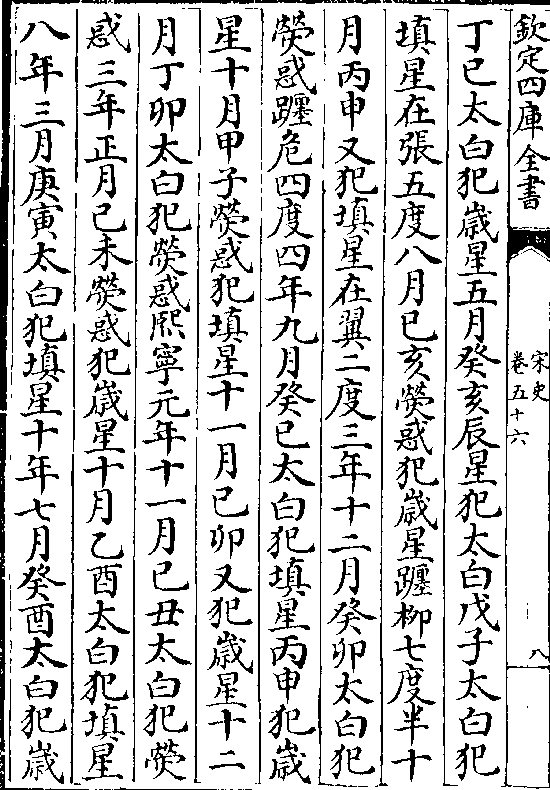 欽定四庫全書
宋史
卷五十六
八
丁巳太白犯歲星五月癸亥辰星犯太白戊子太白犯
填星在張五度八月巳亥熒惑犯歲星躔柳七度半十
月丙申又犯填星在翼二度三年十二月癸卯太白犯
熒惑躔危四度四年九月癸巳太白犯填星丙申犯歲
星十月甲子熒惑犯填星十一月巳卯又犯歲星十二
月丁卯太白犯熒惑熈寧元年十一月巳丑太白犯熒
惑三年正月己未熒惑犯歲星十月乙酉太白犯填星
八年三月庚寅太白犯填星十年七月癸酉太白犯歲